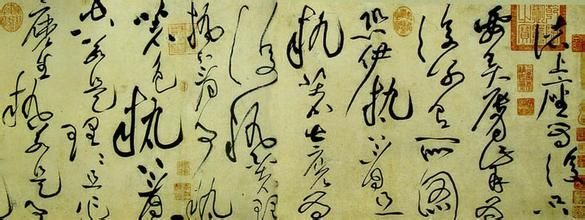 諸上座為復只
要弄唇觜為
復別有所圖
恐伊執著且
執著甚麼為
復執著理
執著事執
著色執著
空若是理理且作
麼生執若是事